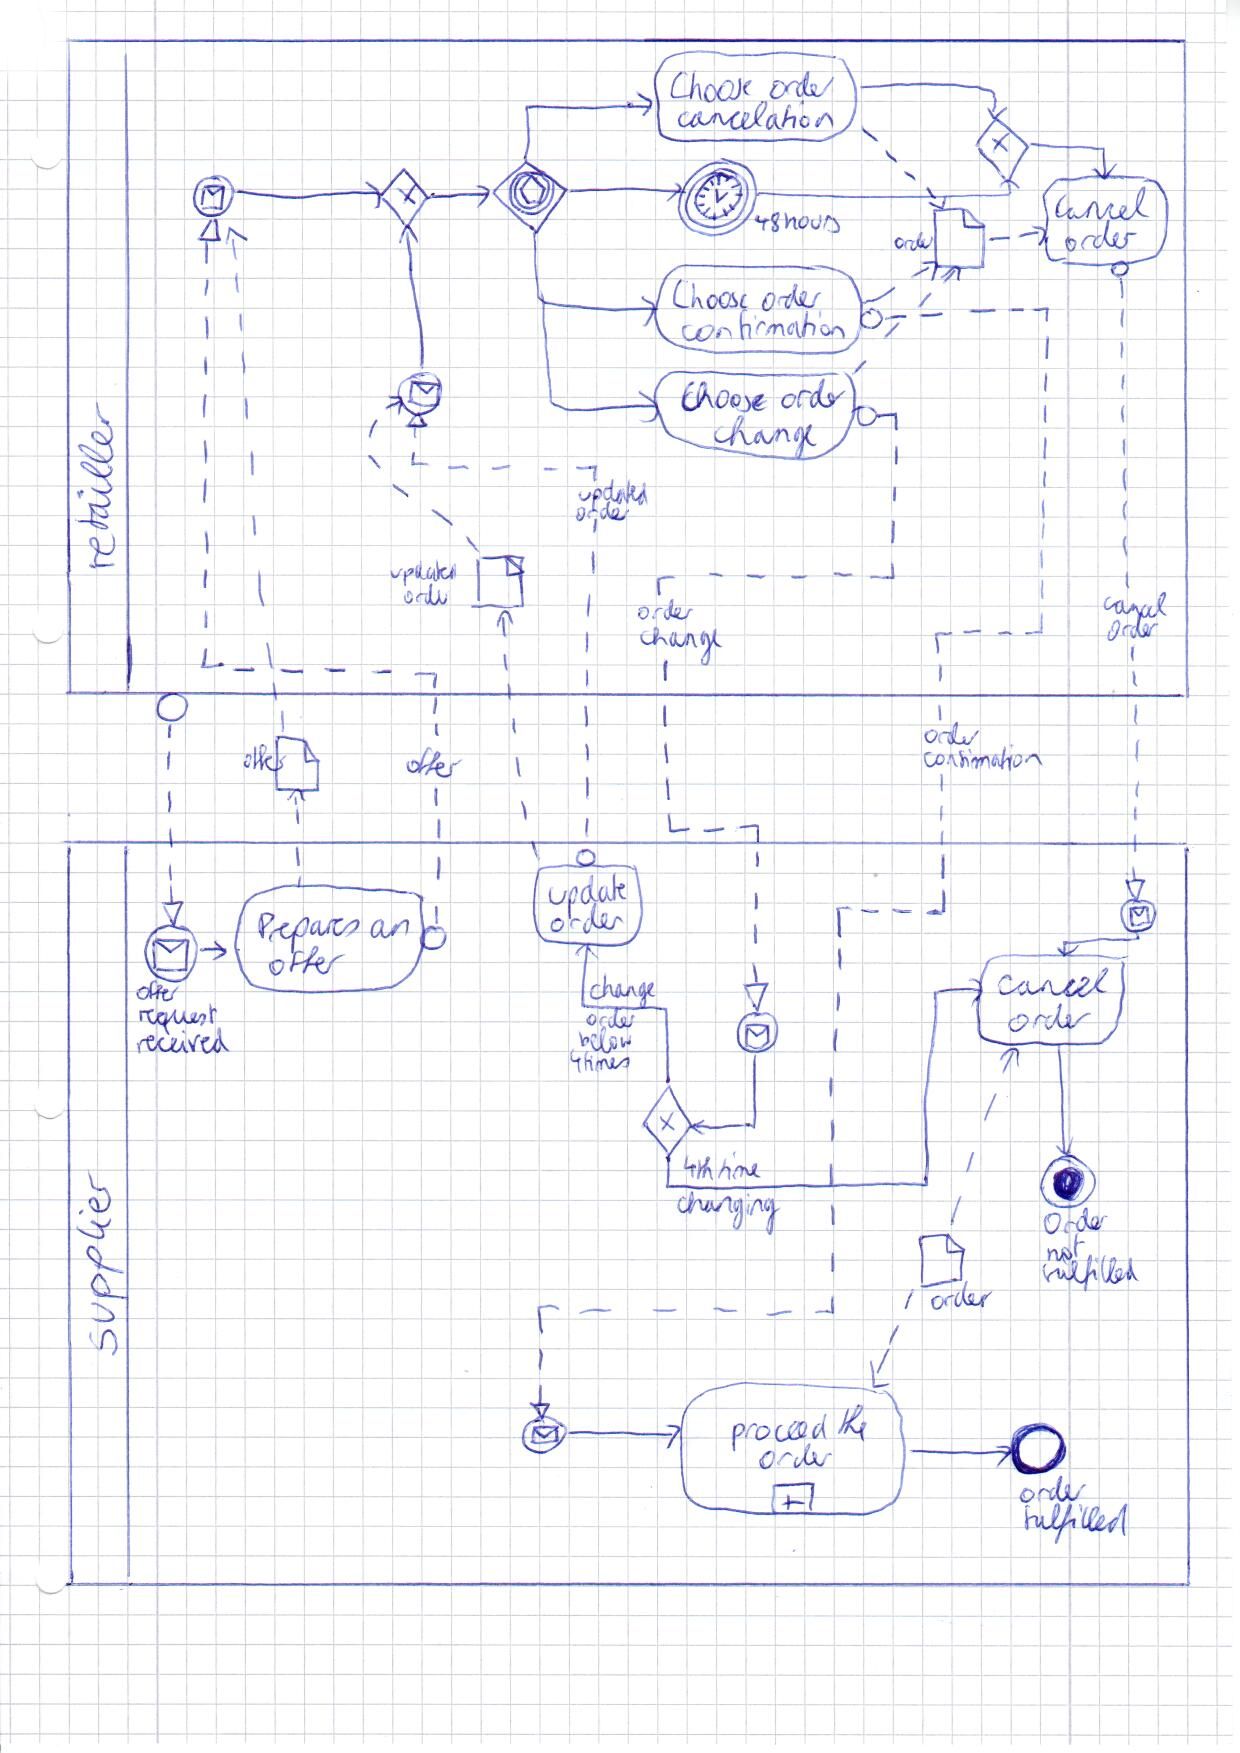 retailler
Choose order
cancelation
48 hours
order
Cancel
order
Choose order
confirmation
Choose order
change
updated
order
updated
order
order
change
cancel
order
offer
offer
order
confirmation
supplier
offer
request
received
Prepares an
offer
update
order
change
order
below
4 times
4th time
changing
cancel
order
Order
not
fulfilled
order
proceed the
order
order
fulfilled